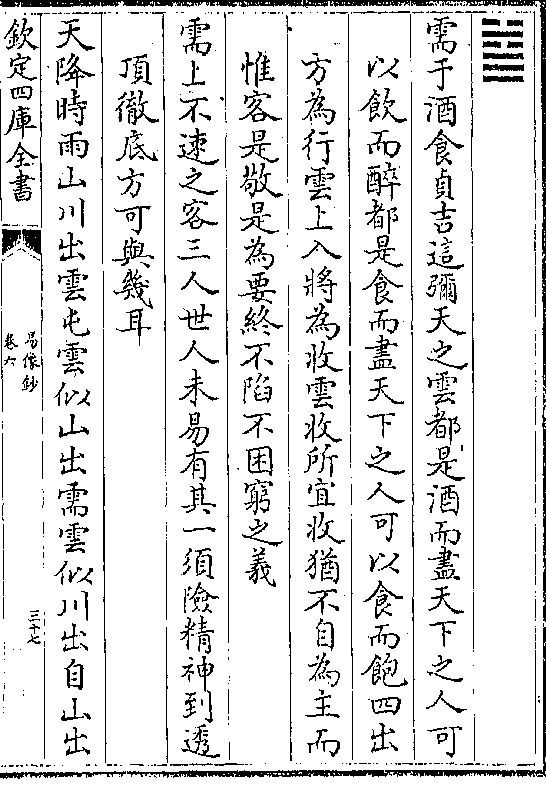 需于酒食貞吉這彌天之雲都是酒而盡天下之人可
以飲而醉都是食而盡天下之人可以食而飽四出
方為行雲上入將為收雲收所宜收猶不自為主而
惟客是敬是為要終不陷不困窮之義
需上不速之客三人世人未易有其一須險精神到透
頂徹底方可與幾耳
天降時雨山川出雲屯雲似山出需雲似川出自山出
欽定四庫全書
易像鈔
卷六
三十七